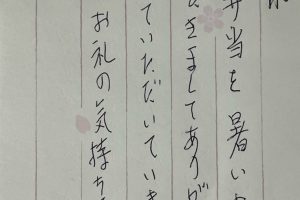 弁当を暑い
きましてありが
ていただいていま
お礼の気持ち